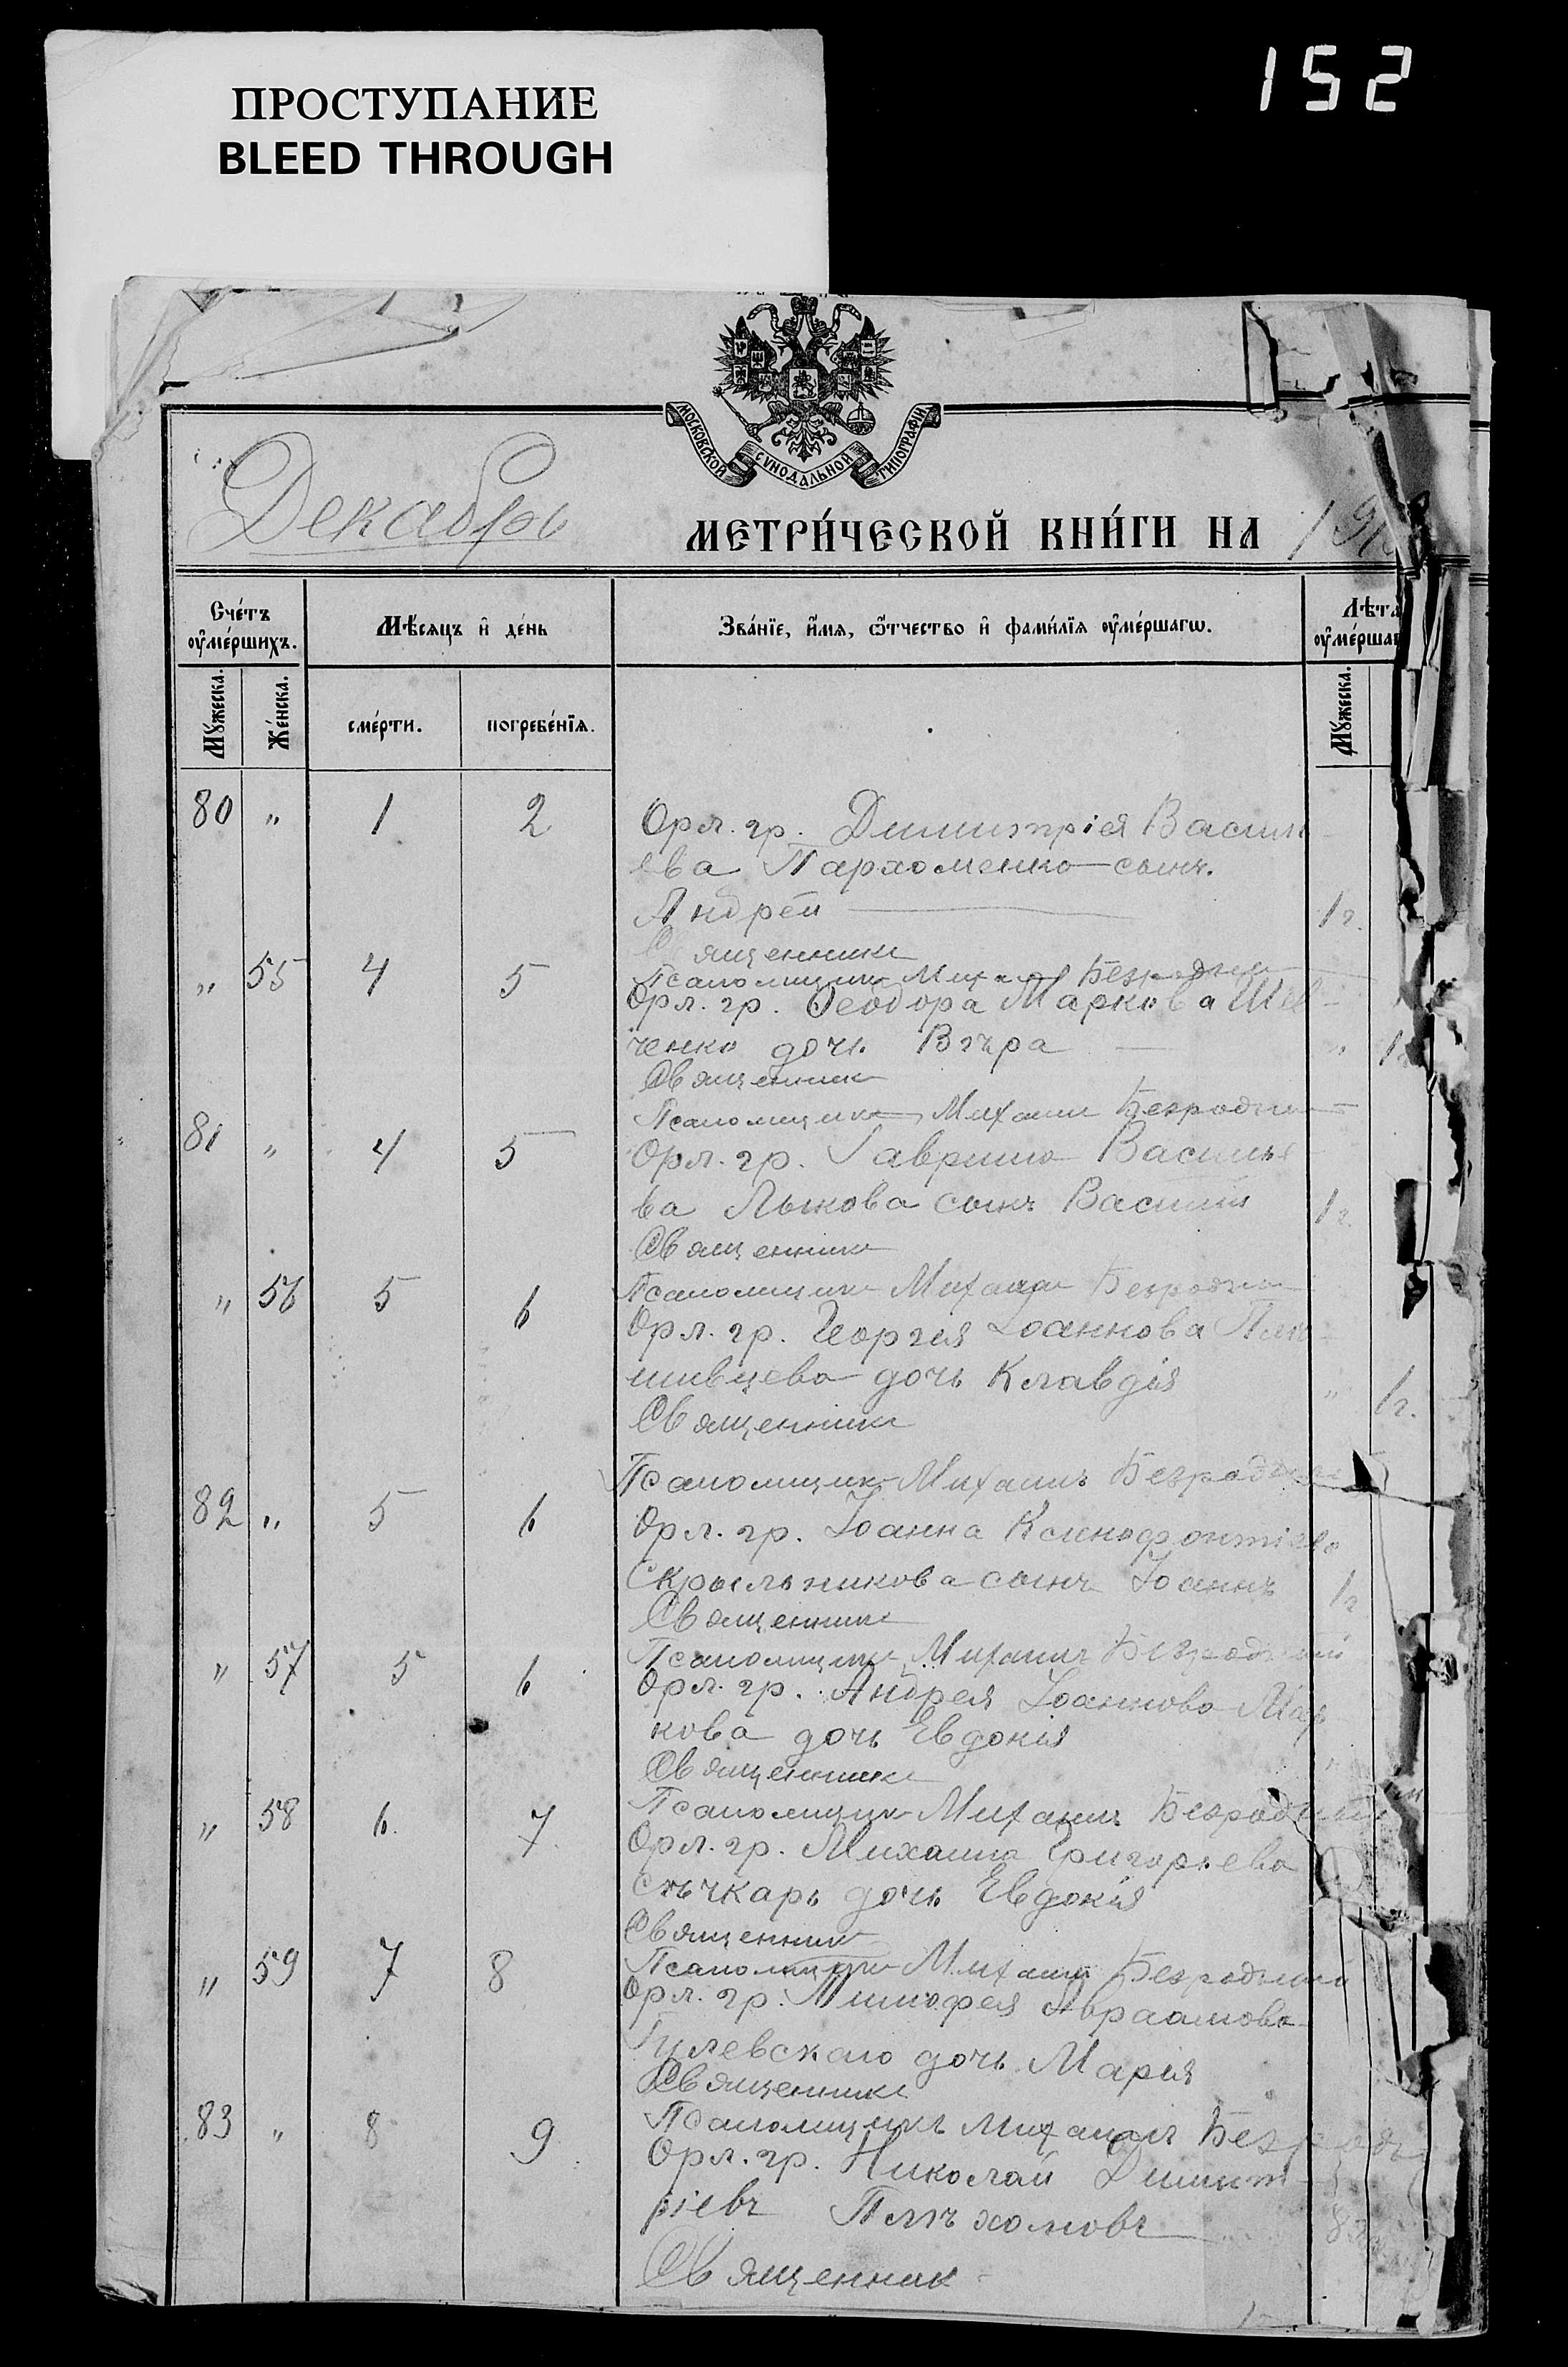 ПРОСТУПАНИЕ
BLEED THROUGH
152
МОСКОВСКОЙ СѴНОДАЛЬНОЙ ТИПОГРАФІИ
Декабрь
МЕТРИ́ЧЕСКОЙ КНИ́ГИ НА 191
Сче́тъ ѹ҆ме́ршихъ.
Мѣ́сяцъ и҆ де́нь
Зва́нїе, и҆́мѧ, ѻ҆́тчество и҆ фами́лїѧ ѹ҆ме́ршагѡ.
Лѣта ѹ҆ме́рша
Мꙋ́жеска.
Же́нска.
сме́рти.
погребе́нїѧ.
Мꙋ́жеска.
80 " 1 2 Орл. гр. Димитрія Васил
ева Пархоменко сынъ.
Андрей 1 г.
Священникъ
Псаломщикъ Михаил Безродны
" 55 4 5 Орл. гр. Ѳеодора Маркова Шев
ченко дочь Вѣра " 1
Священник
Псаломщикъ Михаил Безродны
81 " 4 5 Орл. гр. Гавриила Василье
ва Лыкова сынъ Василий 1 г.
Священникъ
Псаломщикъ Михаил Безродны
" 56 5 6 Орл. гр. Георгія Іоаннова
шивцева дочь Клавдія " 1 г.
Священникъ
Псаломщикъ Михаилъ Безродный
82 " 5 6 Орл. гр. Іоанна Ксенофонтіева
Скрыльникова сынъ Іоаннъ 1 г
Священникъ
Псаломщикъ Михаилъ Безродный
" 57 5 6 Орл. гр. Андрея Іоаннова Мар
кова дочь Евдокія "
Священникъ
Псаломщикъ Михаилъ Безродный
" 58 6. 7. Орл. гр. Михаила Григорьева
дочь Евдокія
Священник
Псаломщикъ Михаил Безродный
" 59 7 8 Орл. гр. Авраамова
Гулевскаго дочь Марія
Священникъ
Псаломщикъ Михаилъ Безрод
83 " 8 9 Орл. гр. Николай Димит
ріевъ
Священник